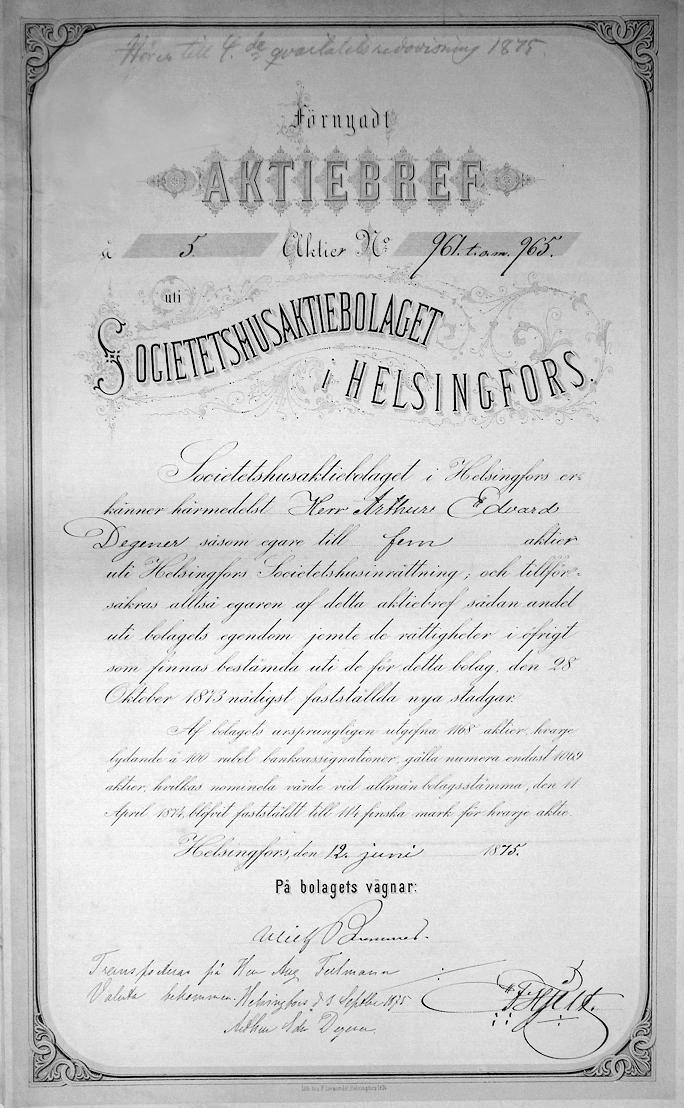 Hörer till 4.de qvartalets redovisning 1875.
Förnyadt
AKTIEBREF
à 5 Aktier No 961. t.o.m. 965.
uti
SOCIETETSHUSAKTIEBOLAGET
i HELSINGFORS.
Societetshusaktiebolaget i Helsingfors er-
känner härmedelst Herr Arthur Edvard
Degener såsom egare till fem aktier
uti Helsingfors Societetshusinrättning; och tillför-
säkras alltså egaren af detta aktiebref sådan andel
uti bolagets egendom jemte de rättigheter i öfrigt
som finnas bestämda uti de för detta bolag, den 28
Oktober 1873 nådigst fastställda nya stadgar.
Af bolagets ursprungligen utgifna 1168 aktier, hvarje
lydande à 100 rubel bankoassignationer, gälla numera endast 1069
aktier, hvilkas nominela värde vid allmän bolagsstämma, den 11
April 1874, blifvit faststäldt till 114 finska mark för hvarje aktie.
Helsingfors, den 12. juni 1875.
På bolagets vägnar:
Transporteras på Herr Aug
Valuta bekommen. Helsingfors d. 3 Septbr 1875
Arthur Edv Degener